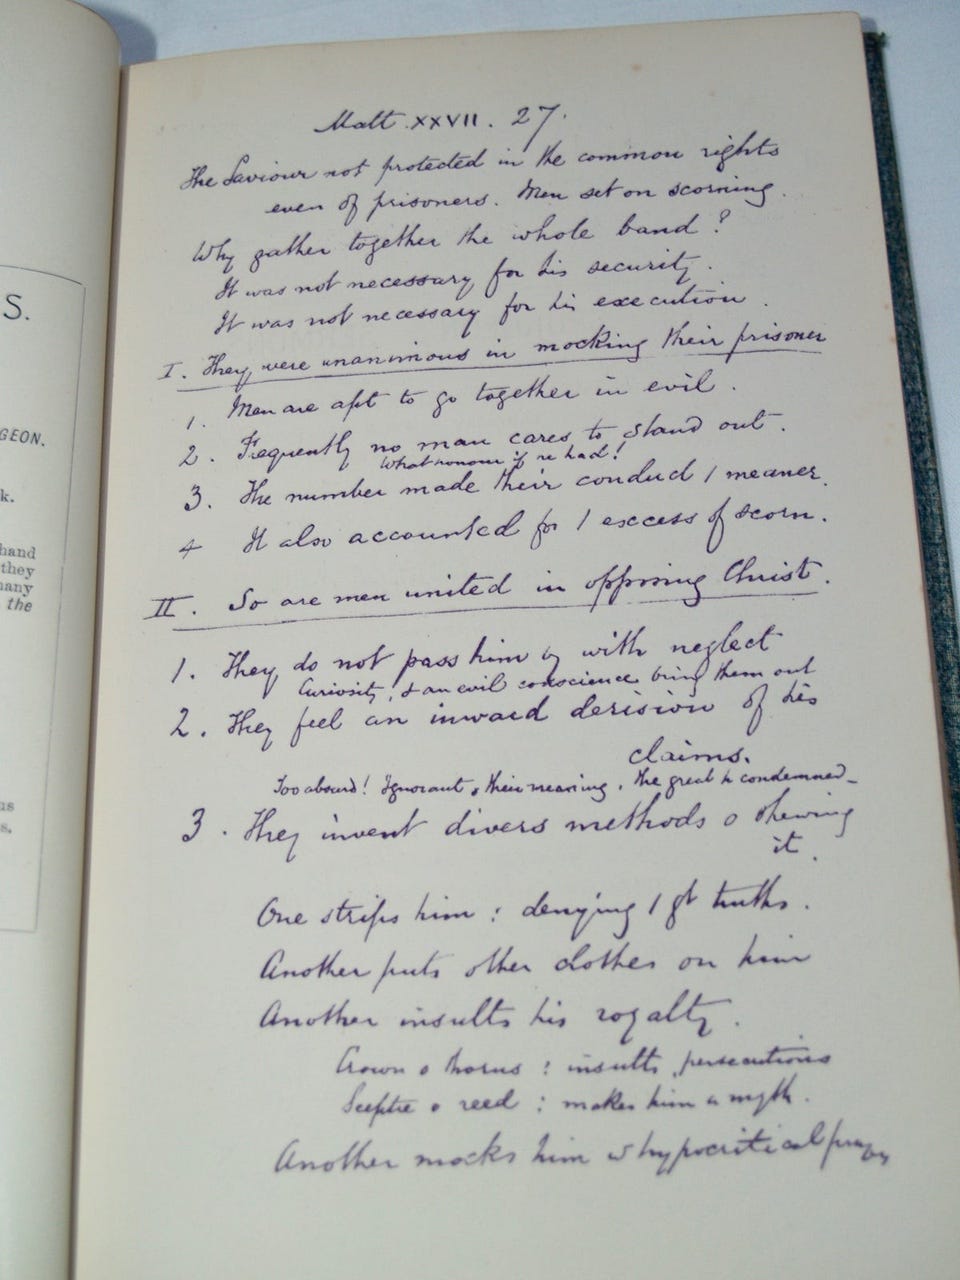 S.
GEON.
k.
hand
they
many
the
us
s,
Matt XXVII. 27.
The Saviour not protected in the common rights
even of prisoners. Men set on scorning.
Why gather together the whole band?
It was not necessary for his security.
It was not necessary for his execution.
I. They were unanimous in mocking their prisoner
1. Men are apt to go together in evil.
2. Frequently no man cares to stand out.
What honour if he had!
3. The number made their conduct / meaner.
4 It also accounted for / excess of scorn.
II. So are men united in opposing Christ.
1. They do not pass him by with neglect
Curiosity, & an evil conscience bring them out
2. They feel an inward derision of his
claims.
Too absurd! Ignorant o their meaning. The great h condemned
3. They invent divers methods o shewing
it.
One strips him: denying / gt truths.
Another puts other clothes on him
Another insults his royalty.
Crown o thorns: insults, persecutions
Sceptre o reed: makes him a myth.
Another mocks him w hypocritical